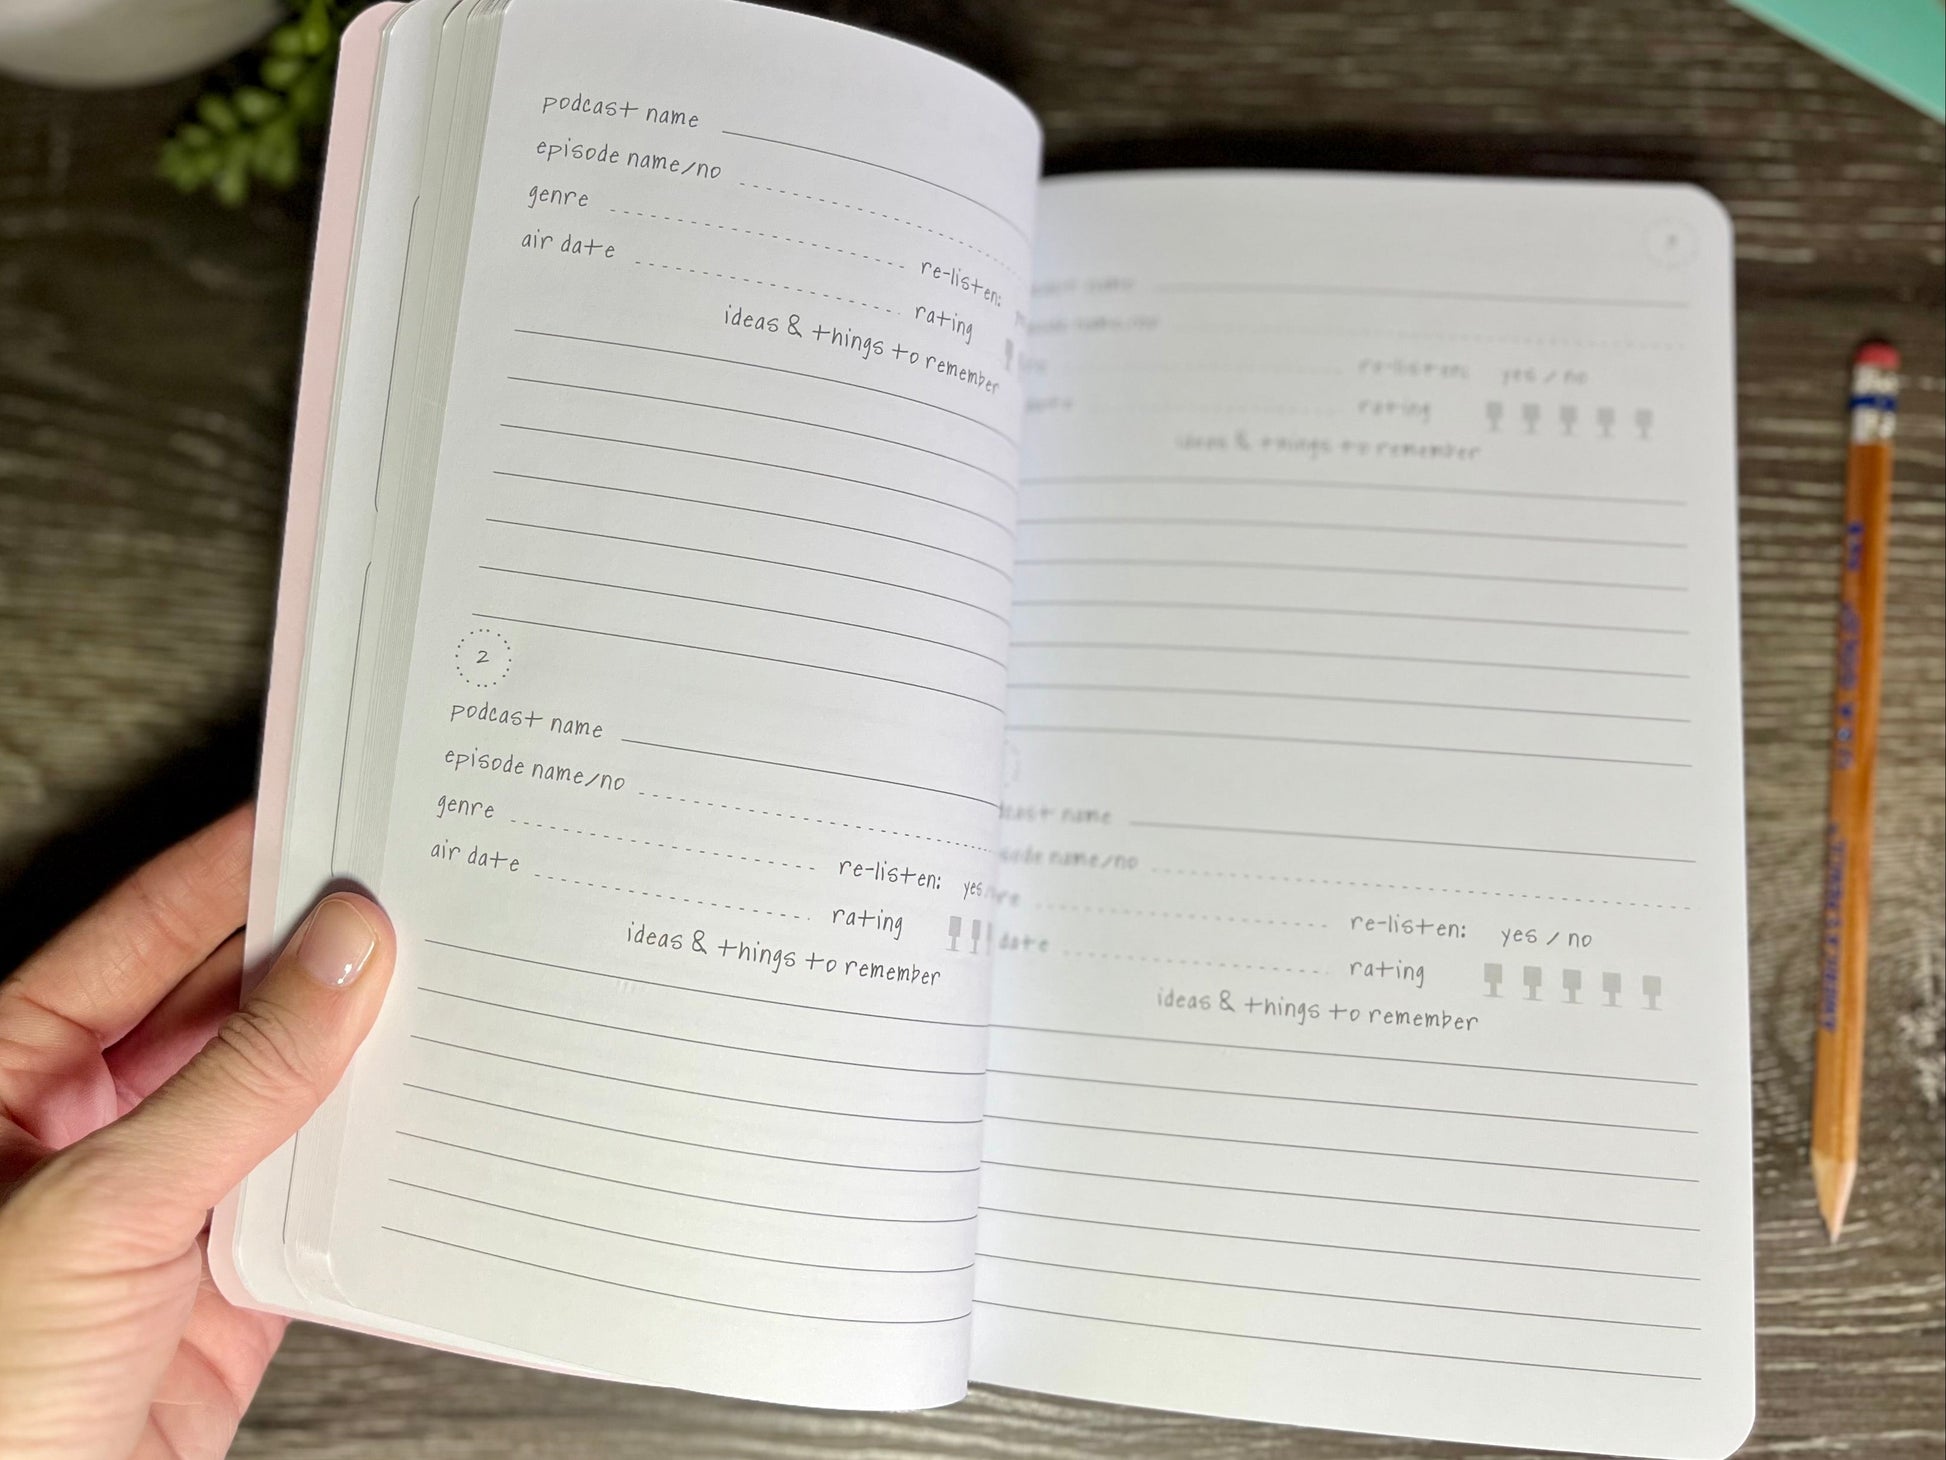 podcast name
episode name/no
genre
re-listen:
air date
rating
ideas & things to remember
2
podcast name
episode name/no
genre
re-listen: yes
air date
rating
ideas & things to remember
re-listen: yes / no
rating
ideas & things to remember
name
name/no
re-listen: yes / no
date
rating
ideas & things to remember